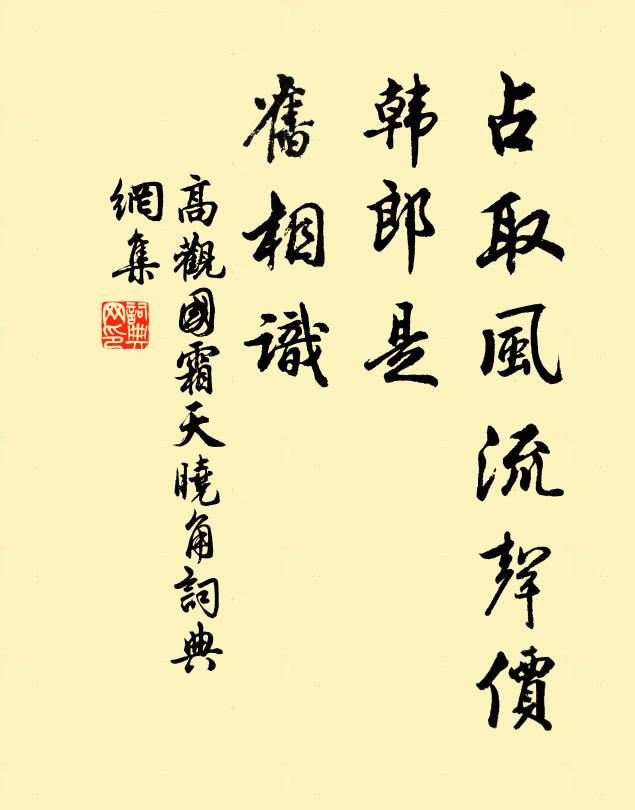 占取風流聲價
韩郎是
舊相識
高觀國霜天曉角詞典
網集
詞典
网印